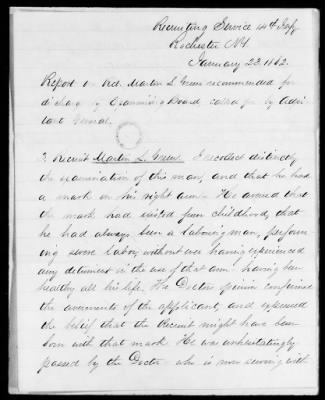 Recruiting Service 14th Infy
Rochester NY.
January 23. 1862.
Report on Rct. Martin L. Green recommended for
discharge by Examining Board called for by Adju-
tant General.
3 Recruit Martin L. Green I recollect distinctly
the examination of this man, and that he had
a mark on his right arm - He averred that
the mark had existed from childhood, that
he had always been a labouring man, perform-
ing severe labor, without ever having experienced
any detriment in the use of that arm - having been
healthy all his life, The Doctor's opinion confirmed
the averments of the applicant, and expressed
the belief that the Recruit might have been
born with that mark He was unhesitatingly
passed by the Doctor - who is now serving with